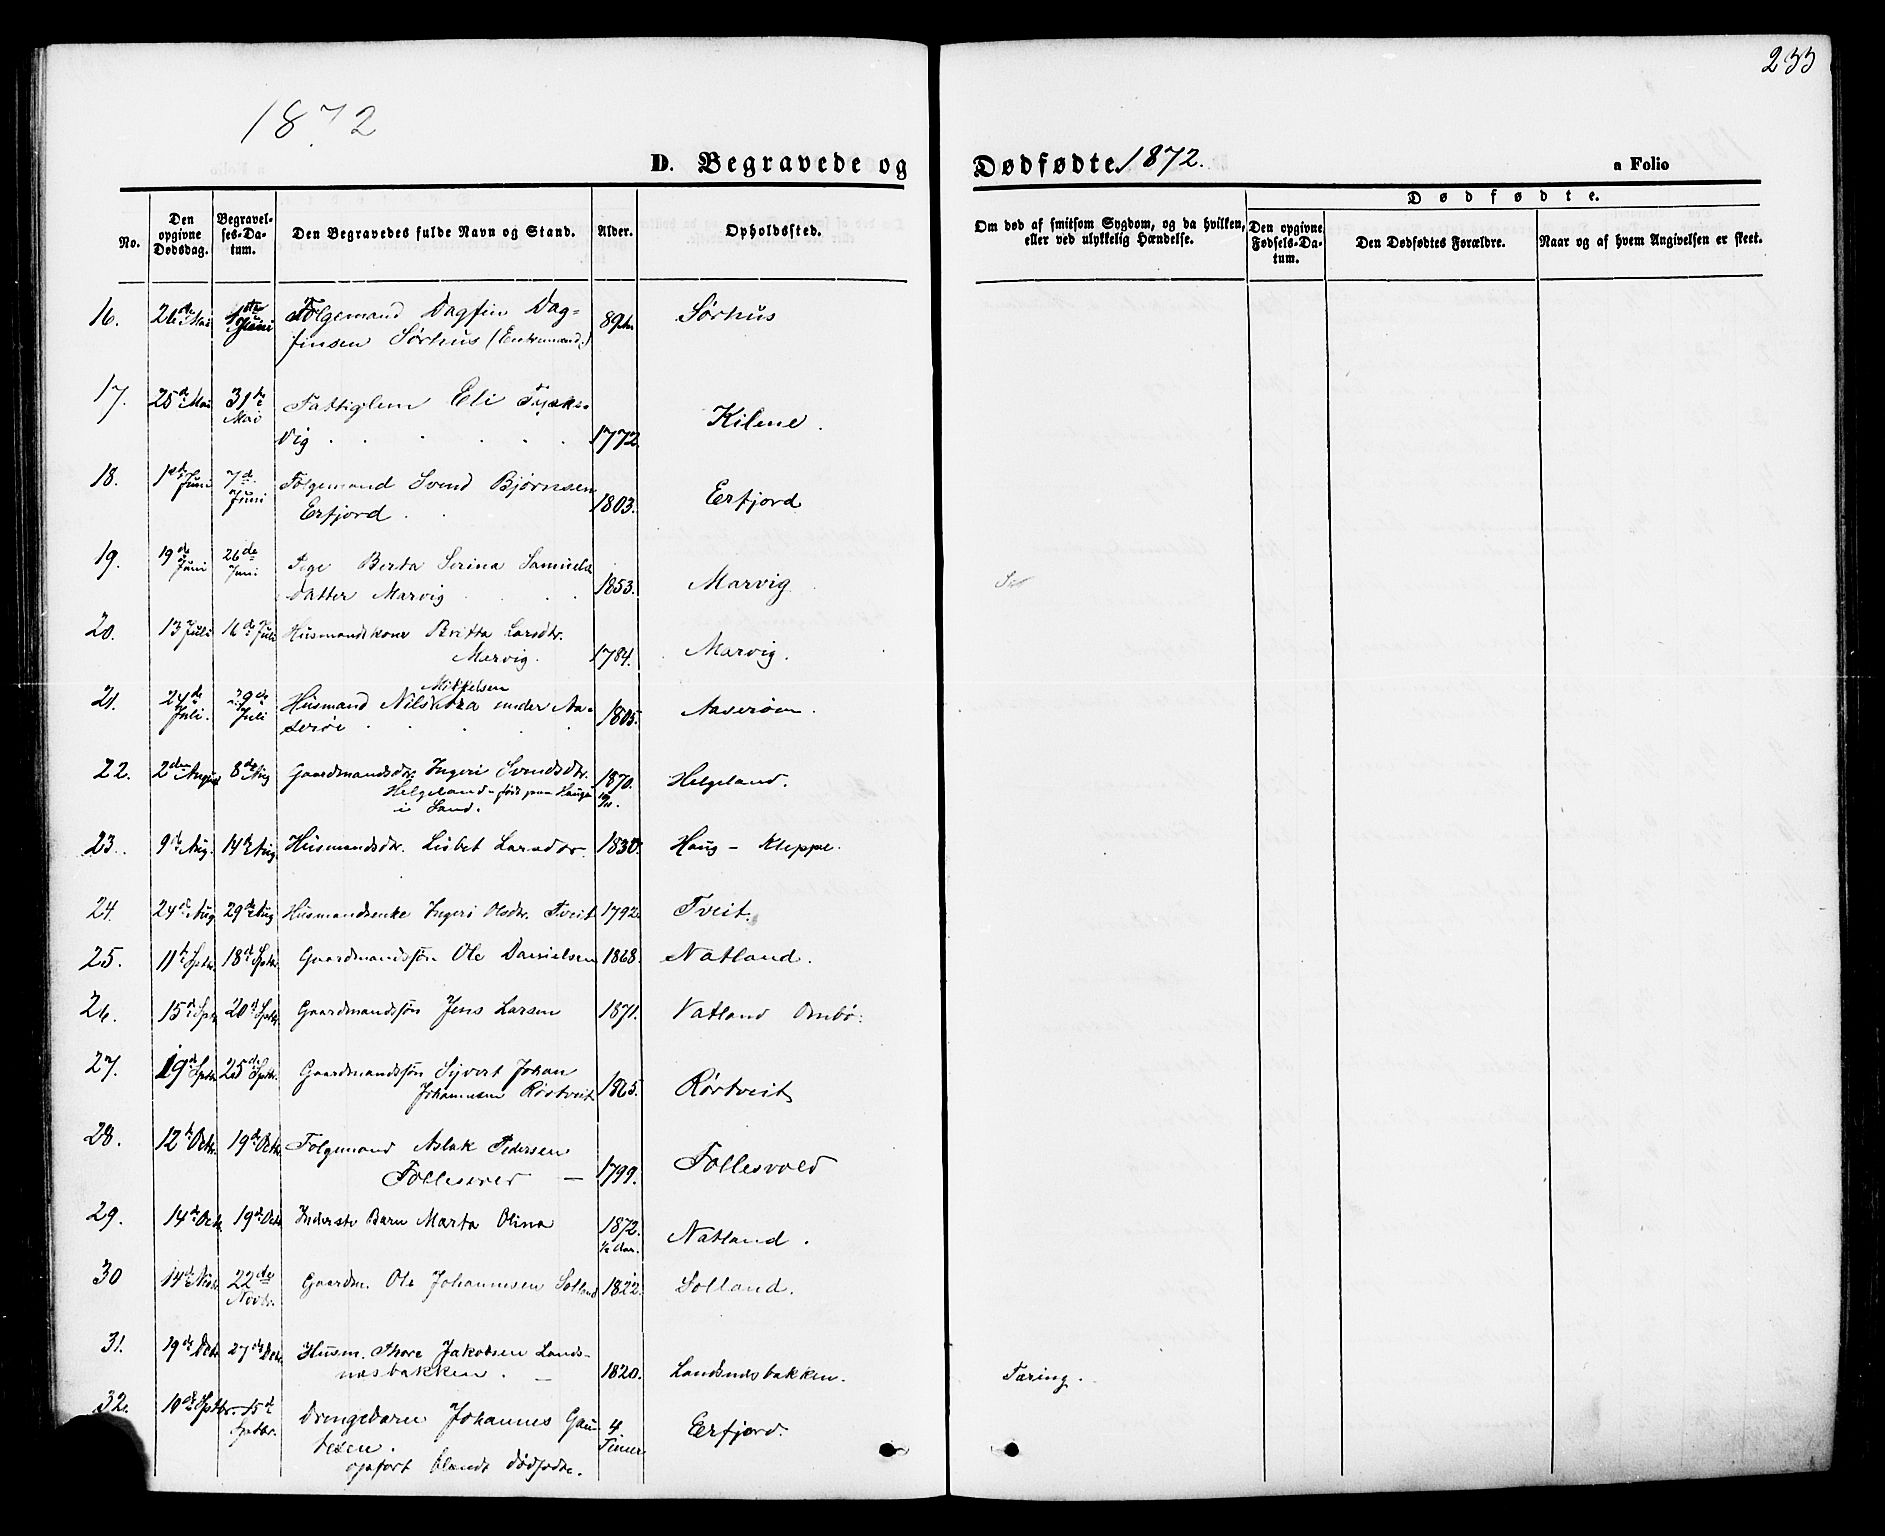 233
1872
D. Begravede og Dødfødte 1872.
a Folio
No.
Den opgivne Dødsdag.
Begravelses-Datum.
Den Begravedes fulde Navn og Stand.
Alder.
Opholdssted.
Om død af smitsom Sygdom, og da hvilken, eller ved ulykkelig Hændelse.
Dødfødte.
Den opgivne Fødsels-Datum.
Den Dødfødtes Forældre.
Naar og af hvem Angivelsen er skeet.
16. 26de Mai Juni Folgemand Dagfin Dag=
finsen Sørhus (Enkemand) 89 Sørhus
17. 25de Mai 31te Mai Fattiglem Eli
vig 1772 Kilene.
18. 1ste Juni 7de Juni Folgemand Svend Bjørnsen
Erfjord 1803. Erfjord
19. 19de Juni 26de Juni Pige Berta Serina Samuels
datter Marvig 1853. Marvig
20. 13 Juli 16de Juli Husmandskone Britta Larsdtr.
Marvig. 1784. Marvig.
21. 24de Juli. 29de Juli Husmand Nils Mikkelsen under Aa-
serøe 1805. Aaserøen.
22. 2den August 8de Aug Gaardmandsdtr. Ingeri Svendsdtr.
Helgeland - født paa Hauge
i Sand. 1870. Helgeland.
23. 9de Aug. 14de Aug Husmandsdtr. Lisbet Larsdtr. 1830. Haug - Kleppe.
24. 24de Aug 29de Aug Husmandsenke Ingeri Olsdtr. Tveit 1792 Tveit.
25. 11te Septbr. 18de Septbr. Gaardmandssøn Ole Danielsen 1868. Natland.
26. 15de Septbr 20de Septbr. Gaardmandssøn Jens Larsen 1871. Vatland Ombø.
27. 19de Septbr 25de Septbr. Gaardmandssøn Sjvert Johan
Johannesen Rørtveit 1865. Rørtveit
28. 12te Octbr. 19de Octbr Folgemand Aslak Pedersen
Follesvold — 1799. Follesvold
29. 14de Octbr. 19de Octbr Inderste Barn Marta Olina 1872. ½ Aar. Natland.
30 14de Novbr. 22de Novbr. Gaardm. Ole Johannesen Solland 1822. Solland.
31. 19de Decbr 27de Decbr Husm. Thore Jakobsen Lands-
næsbakken. 1820. Landsnæsbakken. Tæring.
32. 10de Septbr. 15de Septbr. Drengebarn Johannes Gau
tesen.
opført blandt dødfødte. 4 Timer Erfjord.